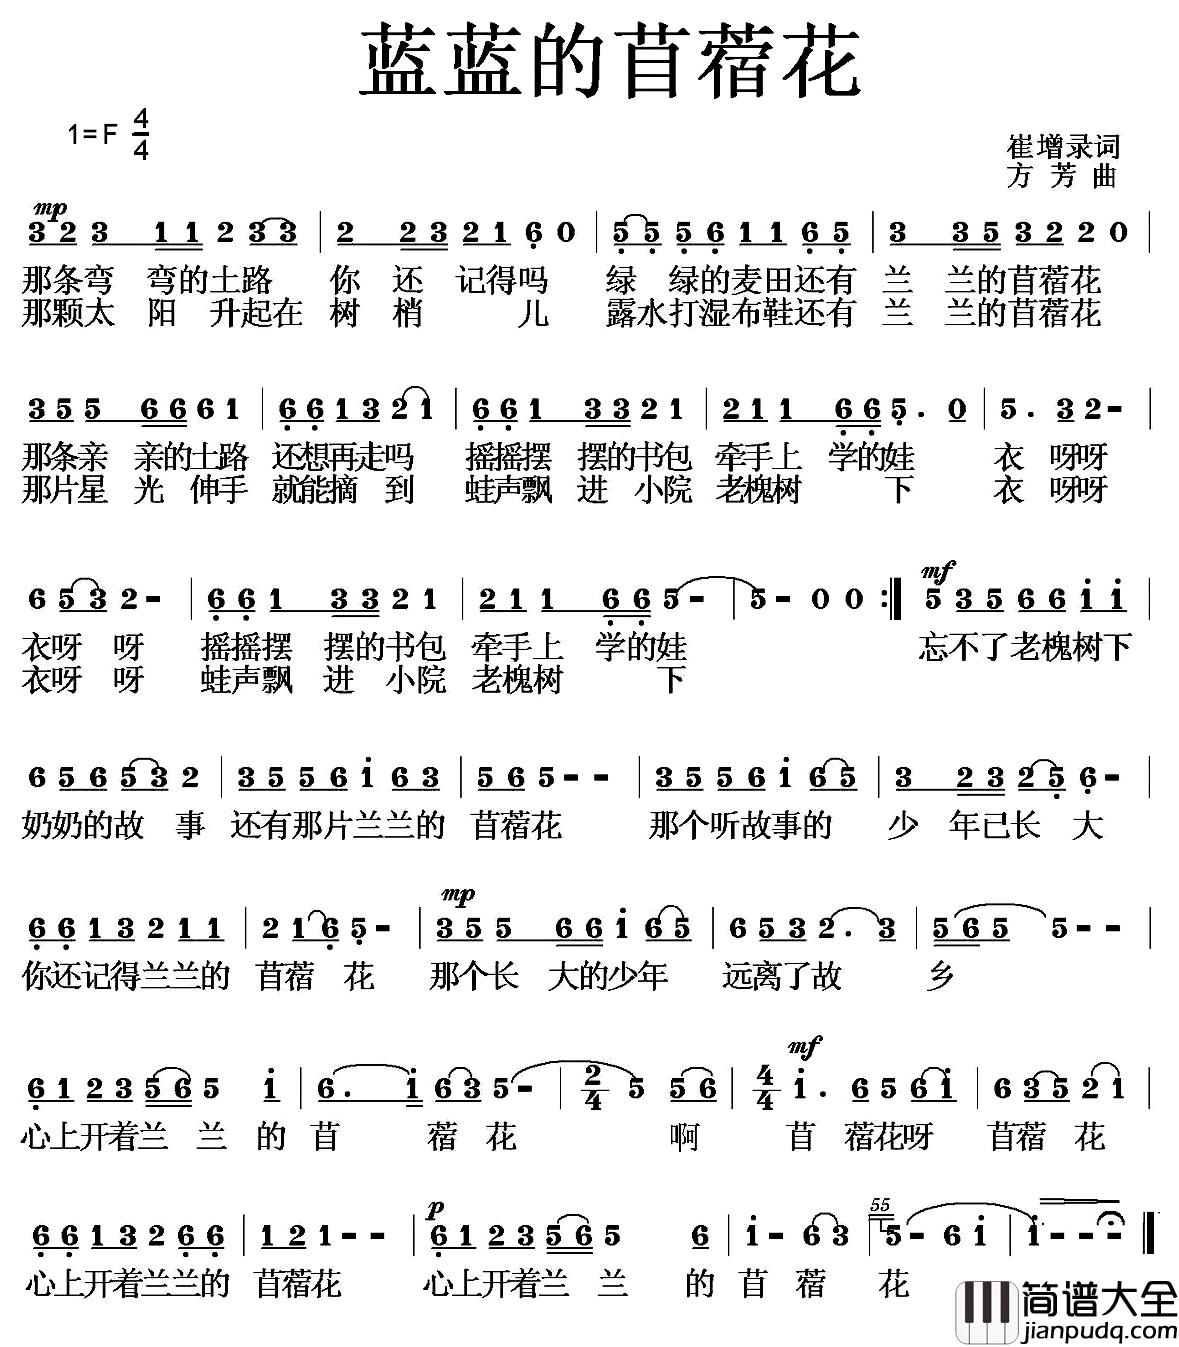 蓝蓝的苜蓿花
1=F 4/4
崔增录词
方 芳 曲
mp
3 2 3 1 1 2 3 3 | 2 2 3 2 1 6 0 | 5 5 5 6 1 1 6 5 | 3 3 5 3 2 2 0 |
那条弯 弯的土路 你 还 记得吗 绿 绿的麦田还有 兰 兰的苜蓿花
那颗太 阳 升起在 树 梢 儿 露水打湿布鞋还有 兰 兰的苜蓿花
3 5 5 6 6 6 1 | 6 6 1 3 2 1 | 6 6 1 3 3 2 1 | 2 1 1 6 6 5 . 0 | 5 . 3 2 - |
那条亲 亲的土路 还想再走吗 摇摇摆 摆的书包 牵手上 学的娃 衣 呀呀
那片星 光 伸手 就能摘 到 蛙声飘 进 小院 老槐树 下 衣 呀呀
mf
6 5 3 2 - | 6 6 1 3 3 2 1 | 2 1 1 6 6 5 - | 5 - 0 0 :| 5 3 5 6 6 i i |
衣呀 呀 摇摇摆 摆的书包 牵手上 学的娃 忘不了老槐树下
衣呀 呀 蛙声飘 进 小院 老槐树 下
6 5 6 5 3 2 | 3 5 5 6 i 6 3 | 5 6 5 - - | 3 5 5 6 i 6 5 | 3 2 3 2 5 6 - |
奶奶的故 事 还有那片兰兰的 苜蓿花 那个听故事的 少 年已长 大
mp
6 6 1 3 2 1 1 | 2 1 6 5 - | 3 5 5 6 6 i 6 5 | 6 5 3 2 . 3 | 5 6 5 5 - - |
你还记得兰兰的 苜蓿 花 那个长 大的少年 远离了故 乡
mf
6 1 2 3 5 6 5 i | 6 . i 6 3 5 - | 2/4 5 5 6 | 4/4 i . 6 5 6 i | 6 3 5 2 1 |
心上开着兰 兰 的 苜 蓿 花 啊 苜 蓿花呀 苜蓿 花
p
6 6 1 3 2 6 6 | 1 2 1 - - | 6 1 2 3 5 6 5 6 | i - 6 3 | 55 5 - 6 i | i - - ‖
心上开着兰兰的 苜蓿花 心上开着兰 兰 的 苜 蓿 花
简谱大全
jianpudq.com